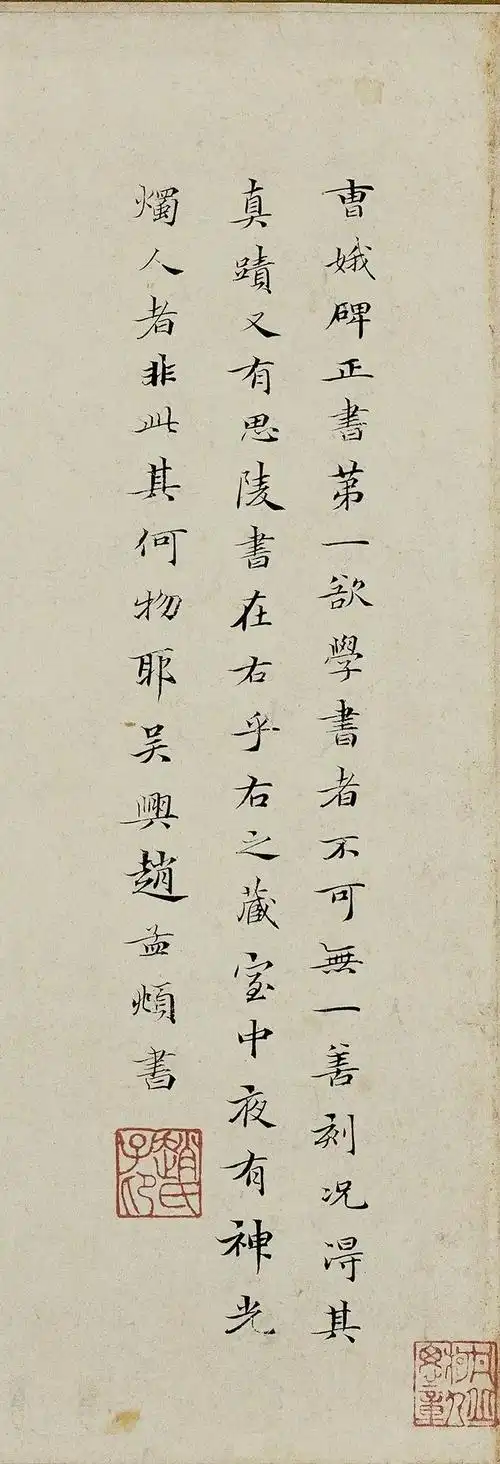 曺娥碑正書第一欲學書者不可無一善刻况得其
真蹟又有思陵書在右乎右之藏室中夜有神光
燭人者非此其何物耶吴興趙孟頫書
趙氏子昂